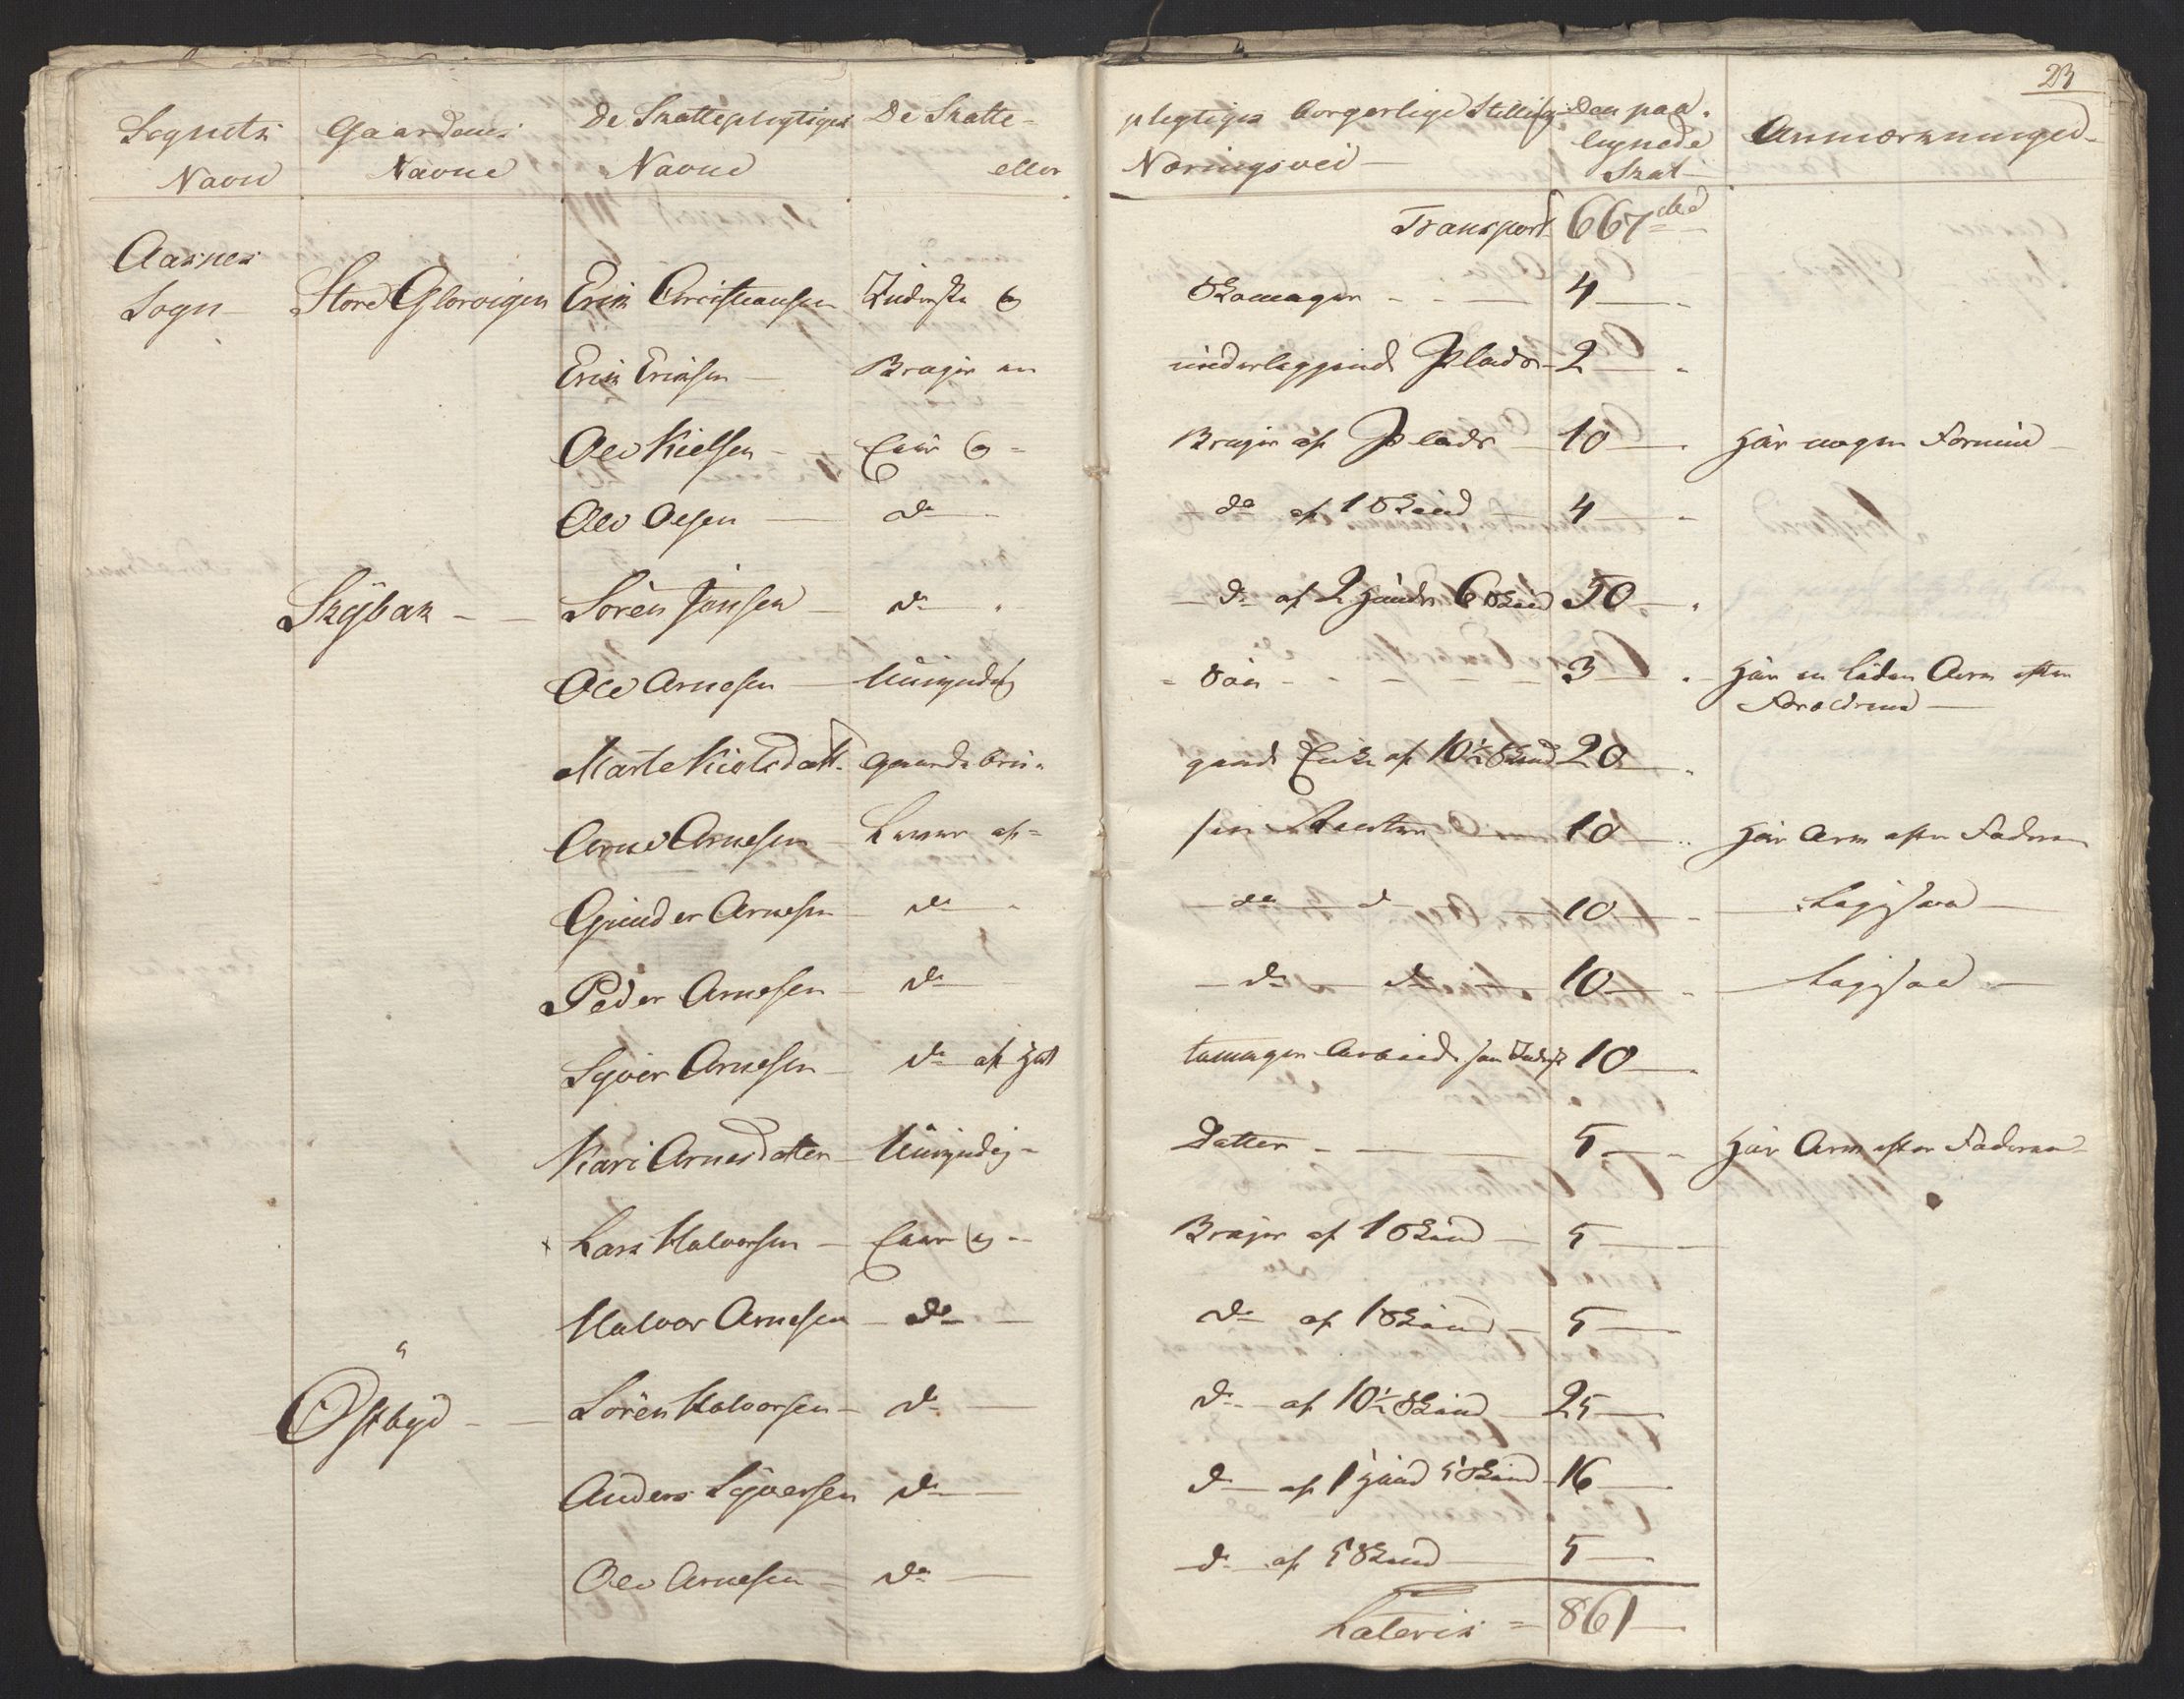 23
Sognets Navn | Gaardenes Navne | De Skattepligtiges Navne | De Skatte- pligtiges borgerlige Stilling eller Næringsvei | Den paalignede Skat | Anmærkninger
Transport 667
Aasnes Sogn | Store Glorvigen | Erik Christiansen | Inderste og Skomager | 4
Erik Eriksen | Bruger en underliggende Plads | 2
Ole Kielsen | Eier og Bruger af Plads | 10 | Har nogen Formue
Ole Olsen | do | do af 1 Skind | 4
Skybak | Sören Jonsen | do | do af 2 Huder 6 Skind | 50
Ole Arnesen | Umyndig Sön | 3 | Har en liden Arv efter Forældrene
Marte Kieldsdatt. | Gaardbrugende Enke af 10½ Skind | 20
Arne Arnesen | Lever af sin Renter | 10 | Har Arv efter Faderen
Gunder Arnesen | do | do d | 10 | Ligesaa
Peder Arnesen | do | do d | 10 | Ligesaa
Syver Arnesen | do af | Arbeide som Inderst | 10
Kari Arnesdatter | Umyndig Datter | 5 | Har Arv efter Faderen
Lars Halvorsen | Eier og Bruger af 1 Skind | 5
Halvor Arnesen | do | do af 1 Skind | 5
Östbye | Sören Halvorsen | do | do af 10½ Skind | 25
Anders Syversen | do | do af 1 Hud 5 Skind | 16
Ole Arnesen | do | do af 5 Skind | 5
Lateris = 861